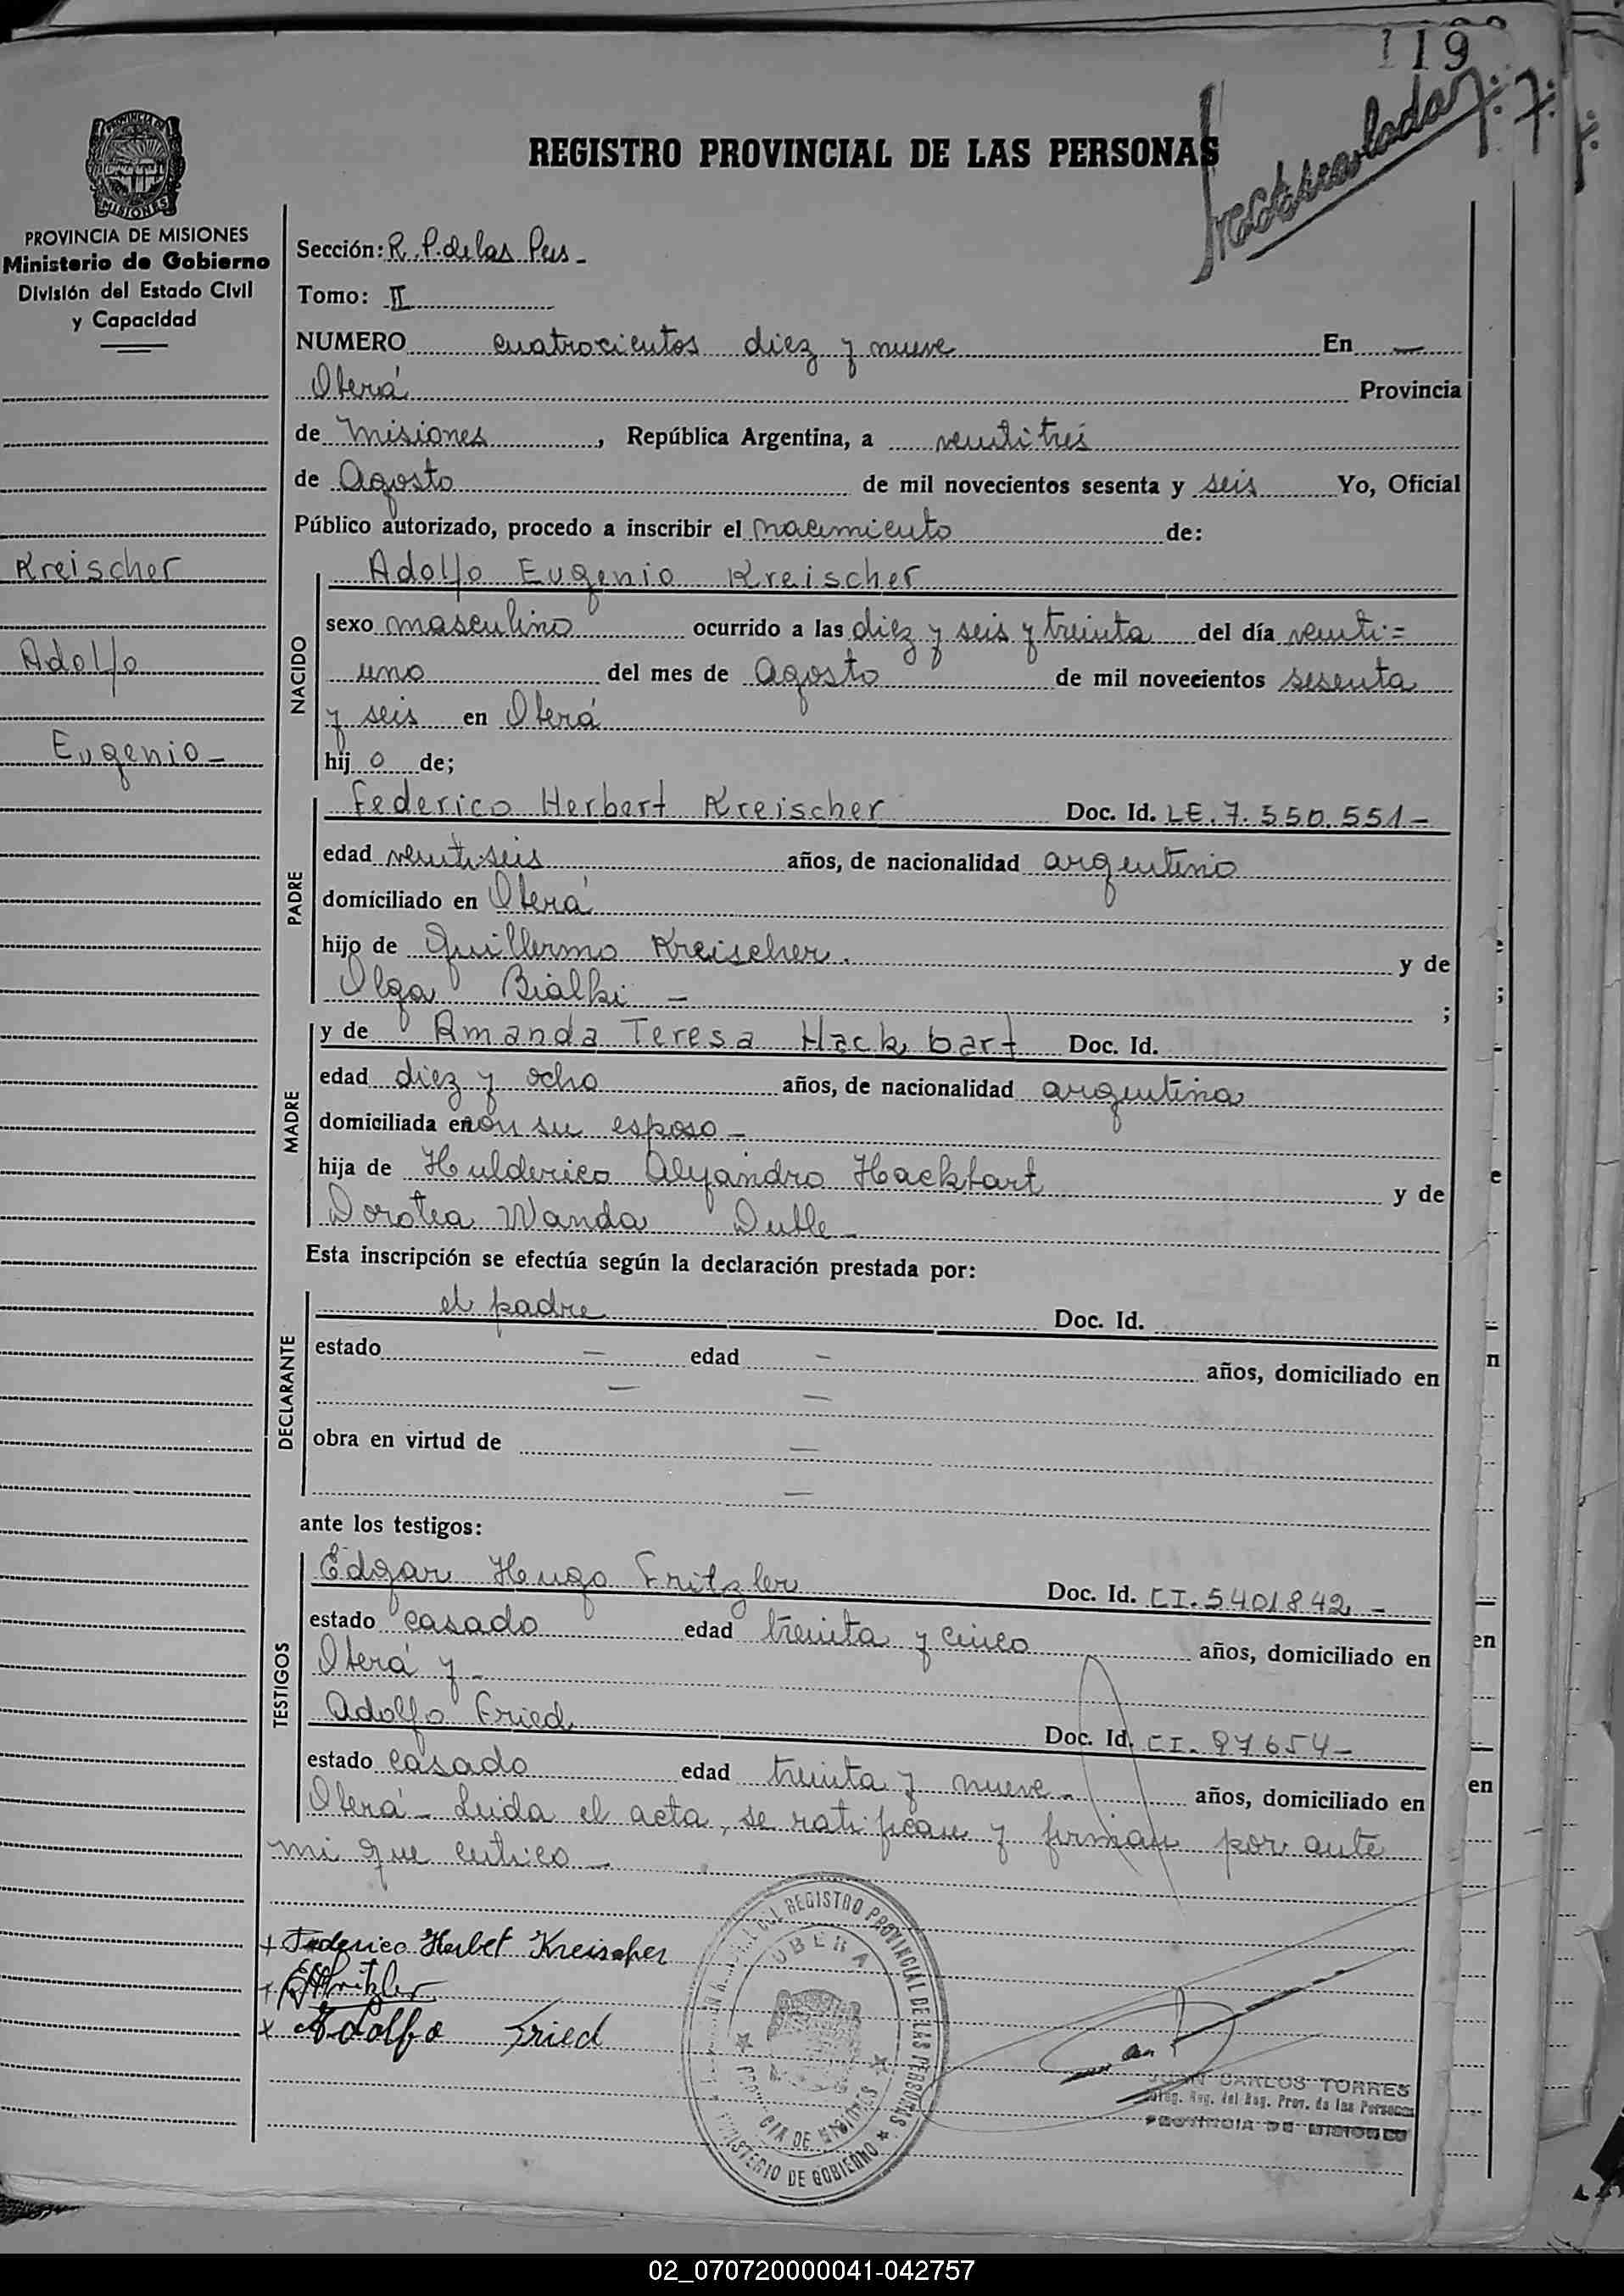 119
REGISTRO PROVINCIAL DE LAS PERSONAS
PROVINCIA DE MISIONES
Ministerio de Gobierno
División del Estado Civil
y Capacidad
Kreischer
Adolfo
Eugenio -
Sección: R. P. de las Pers -
Tomo: II
NUMERO cuatrocientos diez y nueve En —
Oberá Provincia
de Misiones, República Argentina, a veintitrés
de Agosto de mil novecientos sesenta y seis Yo, Oficial
Público autorizado, procedo a inscribir el nacimiento de:
Adolfo Eugenio Kreischer
NACIDO
sexo masculino ocurrido a las diez y seis y treinta del día veinti=
uno del mes de Agosto de mil novecientos sesenta
y seis en Oberá
hijo de;
PADRE
Federico Herbert Kreischer Doc. Id. LE. 7.550.551-
edad veintiseis años, de nacionalidad argentino
domiciliado en Oberá
hijo de Guillermo Kreischer. y de
Olga Bialki - ;
MADRE
y de Amanda Teresa Hackbart Doc. Id.
edad diez y ocho años, de nacionalidad argentina
domiciliada en con su esposo -
hija de Hulderico Alejandro Hackbart y de
Dorotea Wanda -
Esta inscripción se efectúa según la declaración prestada por:
DECLARANTE
el padre Doc. Id.
estado — edad — años, domiciliado en
— —
obra en virtud de —
—
ante los testigos:
TESTIGOS
Edgar Hugo Fritzler Doc. Id. CI. 5401842 -
estado casado edad treinta y cinco años, domiciliado en
Oberá y -
Adolfo Fried Doc. Id. CI. 97654-
estado casado edad treinta y nueve - años, domiciliado en
Oberá - Leida el acta, se ratifican y firman por ante
mi que certifico -
+ Federico Herbet Kreischer
+ EHFritzler
x Adolfo Fried
REGISTRO PROVINCIAL DE LAS PERSONAS
OBERA
PROVINCIA DE MISIONES
MINISTERIO DE GOBIERNO
JUAN CARLOS TORRES
del Reg. Prov. de las Personas
PROVINCIA DE MISIONES
02_070720000041-042757